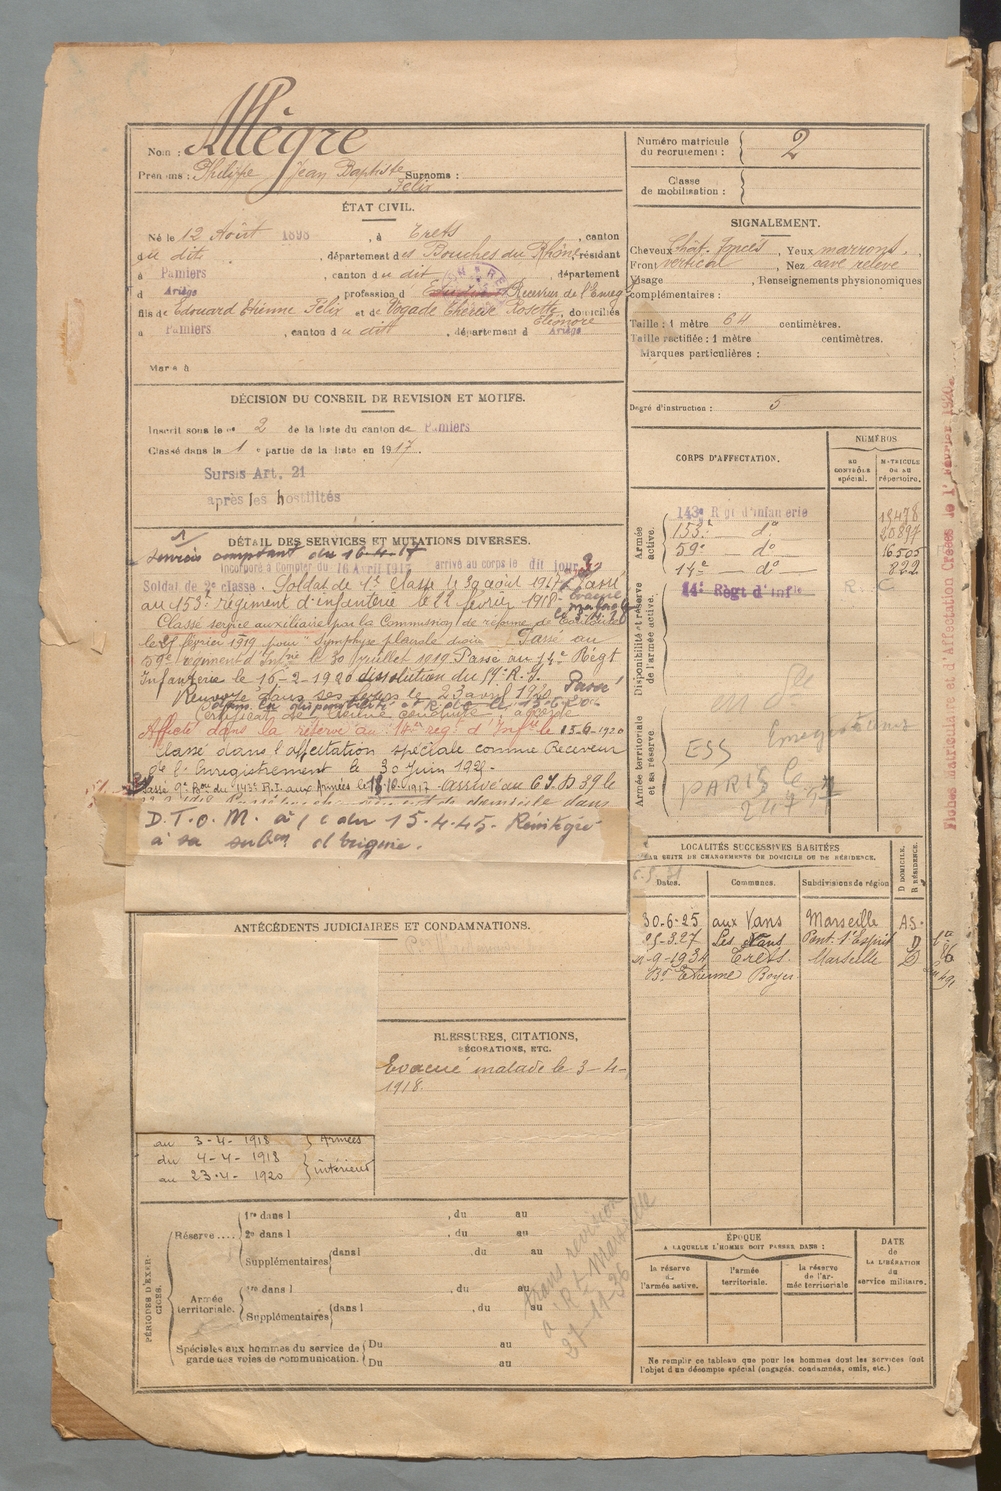 Nom : Allègre
Prénoms : Philippe Jean Baptiste Surnoms :
Félix
ÉTAT CIVIL.
Né le 12 Août 1898, à Trets, canton
du dit, département des Bouches du Rhône, résidant
à Pamiers, canton du dit, département
d Ariège, profession d Receveur de l'Enreg
fils de Edouard Etienne Félix et de Vogade Thérèse Rosette, domiciliés
Eléonore
à Pamiers, canton du dit, département d Ariège
Marié à
DÉCISION DU CONSEIL DE REVISION ET MOTIFS.
Inscrit sous le n° 2 de la liste du canton de Pamiers
Classé dans la 1 e partie de la liste en 1917.
Sursis Art. 21
après les hostilités
DÉTAIL DES SERVICES ET MUTATIONS DIVERSES.
Services comptant du 16-4-17
Incorporé à compter du 16 Avril 1917 arrivé au corps le dit jour
Soldat de 2e classe. Soldat de 1e Classe le 30 août 1917 Passé
au 153e régiment d'infanterie le 22 février 1918
Classé service auxiliaire par la Commission de réforme de
le février 1919 pour Symphyse pleurale droite Passé au
59e régiment d'Infrie le 30 juillet 1919 Passé au 14e Régt
Infanterie le 16-2-1920 dissolution du R.I.
Renvoyé dans ses foyers le 23 avril 1920 Passé
dans la disponibilité et R. de le 15-6-20
Certificat de bonne conduite accordé
Affecté dans la réserve au reg. d'Inf le 15-6-1920
Classé dans l'affectation spéciale comme Receveur
de l'Enregistrement le 30 Juin 192
Passé 9e Bon du 143e R.I. aux Armées le 13-10-1917 - arrivé au 6 39 le
D.T.O.M. à/c du 15-4-45. Réintégré
à sa subon d'origine.
ANTÉCÉDENTS JUDICIAIRES ET CONDAMNATIONS.
BLESSURES, CITATIONS,
DÉCORATIONS, ETC.
Evacué malade le 3-4-
1918.
au 3-4-1918 } Armées
du 4-4-1918
au 23-4-1920 } intérieur
PÉRIODES D'EXERCICES.
Réserve....
1re dans l , du au
2e dans l , du au
Supplémentaires dans l , du au
Armée territoriale.
1re dans l , du au
Supplémentaires dans l , du au
Spéciales aux hommes du service de
garde des voies de communication.
Du au
Du au
trans revision
à Rt Marseille
27-11-36
Numéro matricule
du recrutement : 2
Classe
de mobilisation :
SIGNALEMENT.
Cheveux chât. foncés, Yeux marrons,
Front vertical, Nez cave relevé
Visage , Renseignements physionomiques
complémentaires :
Taille : 1 mètre 64 centimètres.
Taille rectifiée : 1 mètre centimètres.
Marques particulières :
Degré d'instruction : 5
CORPS D'AFFECTATION.
NUMÉROS
AU CONTRÔLE spécial.
MATRICULE OU AU répertoire.
Armée active.
143e Rgt d'infanterie 15478
153e d° 20897
59e d° 16505
14e d° 822
Disponibilité et réserve de l'armée active.
14e Règt d'Infie R. C
Armée territoriale et sa réserve
Enregistrement
ESS
PARIS le
LOCALITÉS SUCCESSIVES HABITÉES
PAR SUITE DE CHANGEMENTS DE DOMICILE OU DE RÉSIDENCE.
Dates. Communes. Subdivisions de région D DOMICILE. R RÉSIDENCE.
30-6-25 aux Vans Marseille AS.
25-3-27 Les Vans Pont-St-Esprit D
-9-1934 Trets. Marseille D
Bd Etienne Boyer
ÉPOQUE
A LAQUELLE L'HOMME DOIT PASSER DANS :
DATE de LA LIBÉRATION du service militaire.
la réserve de l'armée active.
l'armée territoriale.
la réserve de l'armée territoriale
Ne remplir ce tableau que pour les hommes dont les services font
l'objet d'un décompte spécial (engagés, condamnés, omis, etc.)
Fiches Matriculaire et d'Affectation Créées le 1er Février